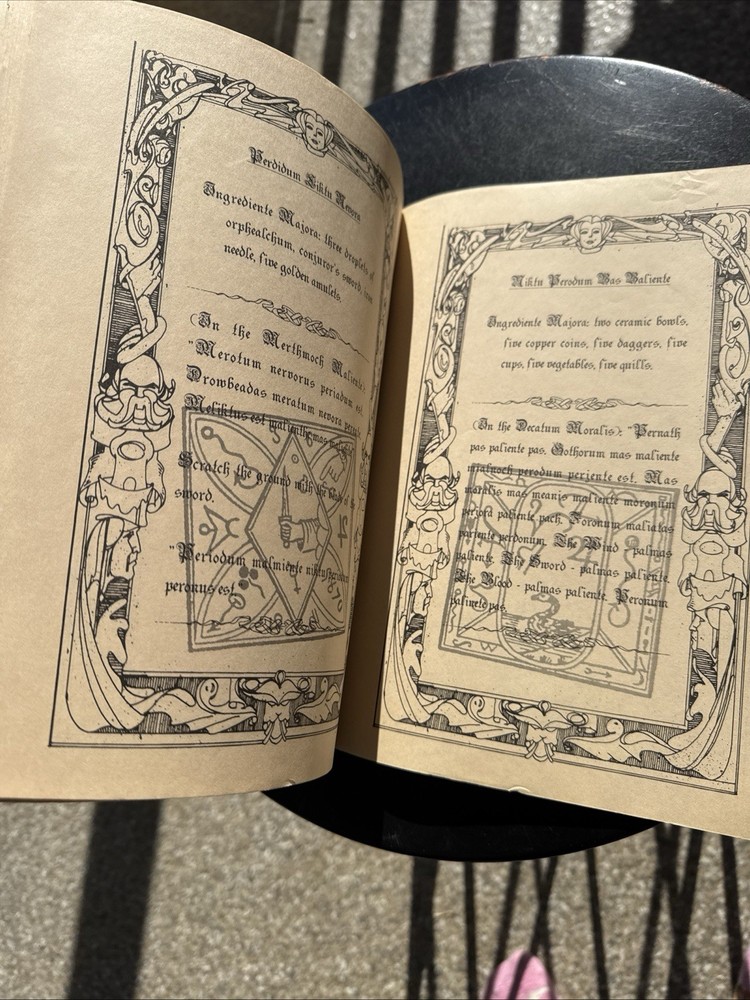 Perdidum Niktu Nevora
Ingrediente Majora: three droplets of
orphealchum, conjuror's sword, iron
needle, five golden amulets.
(In the Merthmoch Maliente):
"Merotum nervorus periadum est.
Drowbeadas meratum nevora
Meliktus est maliente mas
Scratch the ground with the of the
sword.
"Periodum malmiente niktus
peronus est.
Niktu Perodum Bas Baliente
Ingrediente Majora: two ceramic bowls,
five copper coins, five daggers, five
cups, five vegetables, five quills.
(In the Decatum Moralis): "Pernath
pas paliente pas. Gothorum mas maliente
miatnoch perodum perjente est. Mas
moralis mas meanis maliente moronum
perjord paliente pach. Foronum maliatas
pariente perdonum. The Wind - palmas
paliente. The Sword - palmas paliente.
The Blood - palmas paliente. Peronum
palmete pas.